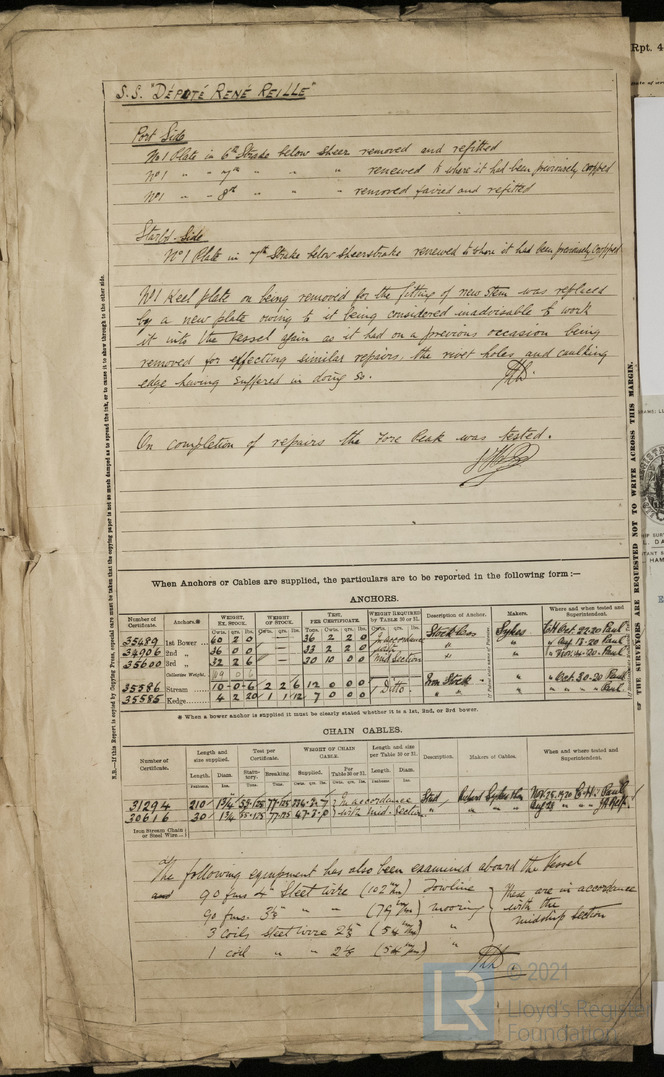 Rpt. 4
S.S. "DÉPUTÉ RENÉ REILLE"
Port Side
No 1 Plate in 6th Strake below Sheer removed and refitted
No 1 " " 7th " " " renewed to where it had been previously cropped
No 1 " " 8th " " " removed faired and refitted
Starb'd Side
No 1 Plate in 7th Strake below Sheerstrake renewed to where it had been previously cropped
No 1 Keel plate on being removed for the fitting of new stem was replaced
by a new plate owing to it being considered inadvisable to work
it into the vessel again as it had on a previous occasion being
removed for effecting similar repairs, the rivet holes and caulking
edge having suffered in doing so.
On completion of repairs the Fore Peak was tested.
When Anchors or Cables are supplied, the particulars are to be reported in the following form :—
ANCHORS.
Number of Certificate. Anchors.* WEIGHT, EX. STOCK. WEIGHT OF STOCK. TEST, PER CERTIFICATE. WEIGHT REQUIRED by TABLE 30 or 31. Description of Anchor. Makers. When and where tested and Superintendent.
Cwts. qrs. lbs. Cwts. qrs. lbs. Tons. cwts. qrs. lbs. Cwts. qrs. lbs.
35489 1st Bower 60 2 0 — 36 2 2 0 In accordance Stockless Sykes Oct. 22-20 Paul
34906 2nd " 36 0 0 — 33 2 2 0 with " " Aug 13-20 Paul
35600 3rd " 32 2 6 — 30 10 0 0 Mid. Section " " Nov. 4-20 Paul
Collective Weight.
35586 Stream 10-0-6 2 2 6 12 0 0 0 Ditto. Iron Stock " Oct. 30-20 Paul
35585 Kedge 4 2 20 1 1 12 7 0 0 0 " " " " " " Paul
* When a bower anchor is supplied it must be clearly stated whether it is a 1st, 2nd, or 3rd bower.
CHAIN CABLES.
Number of Certificate. Length and size supplied. Test per Certificate. WEIGHT OF CHAIN CABLE. Length and size per Table 30 or 31. Description. Makers of Cables. When and where tested and Superintendent.
Length. Diam. Statutory. Breaking. Supplied. Per Table 30 or 31. Length. Diam.
31294 210 1 3/4 55-125 77-175 In accordance Stud Sykes & Son Nov. 25. 1920 Paul
30616 30 1 3/4 55-125 77-175 47-3-0 with mid. Section " " " Aug 23 " "
Iron Stream Chain or Steel Wire
The following equipment has also been examined aboard the vessel
90 fms 4" Steel wire (102 mm) Towline
90 fms. 3½" " " (79 mm) mooring
3 Coils Steel wire 2⅛ (54 mm) "
1 coil " " 2⅛ (54 mm) "
These are in accordance
with the
midship section
N.B.—If this Report is copied by Copying Press, especial care must be taken that the copying paper is not so much damped as to spread the ink, or to cause it to show through to the other side.
THE SURVEYORS ARE REQUESTED NOT TO WRITE ACROSS THIS MARGIN.
LR
© 2021
Lloyd's Register
Foundation